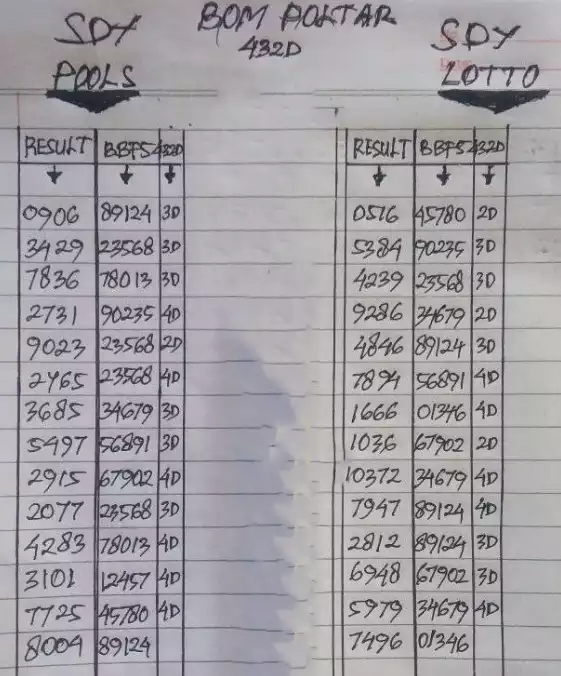 SDY
POOLS
BOM POLTAR
432D
SDY
LOTTO
RESULT BBFS 432D
0906 89124 3D
3429 23568 3D
7836 78013 3D
2731 90235 4D
9023 23568 2D
2465 23568 4D
3685 34679 3D
5497 56891 3D
2915 67902 4D
2077 23568 3D
4283 78013 4D
3101 12457 4D
7725 45780 4D
8004 89124
RESULT BBFS 432D
0516 45780 2D
5384 90235 3D
4239 23568 3D
9286 34679 2D
4846 89124 3D
7894 56891 4D
1666 01346 4D
1036 67902 2D
10372 34679 4D
7947 89124 4D
2812 89124 3D
6948 67902 3D
5979 34679 4D
7496 01346